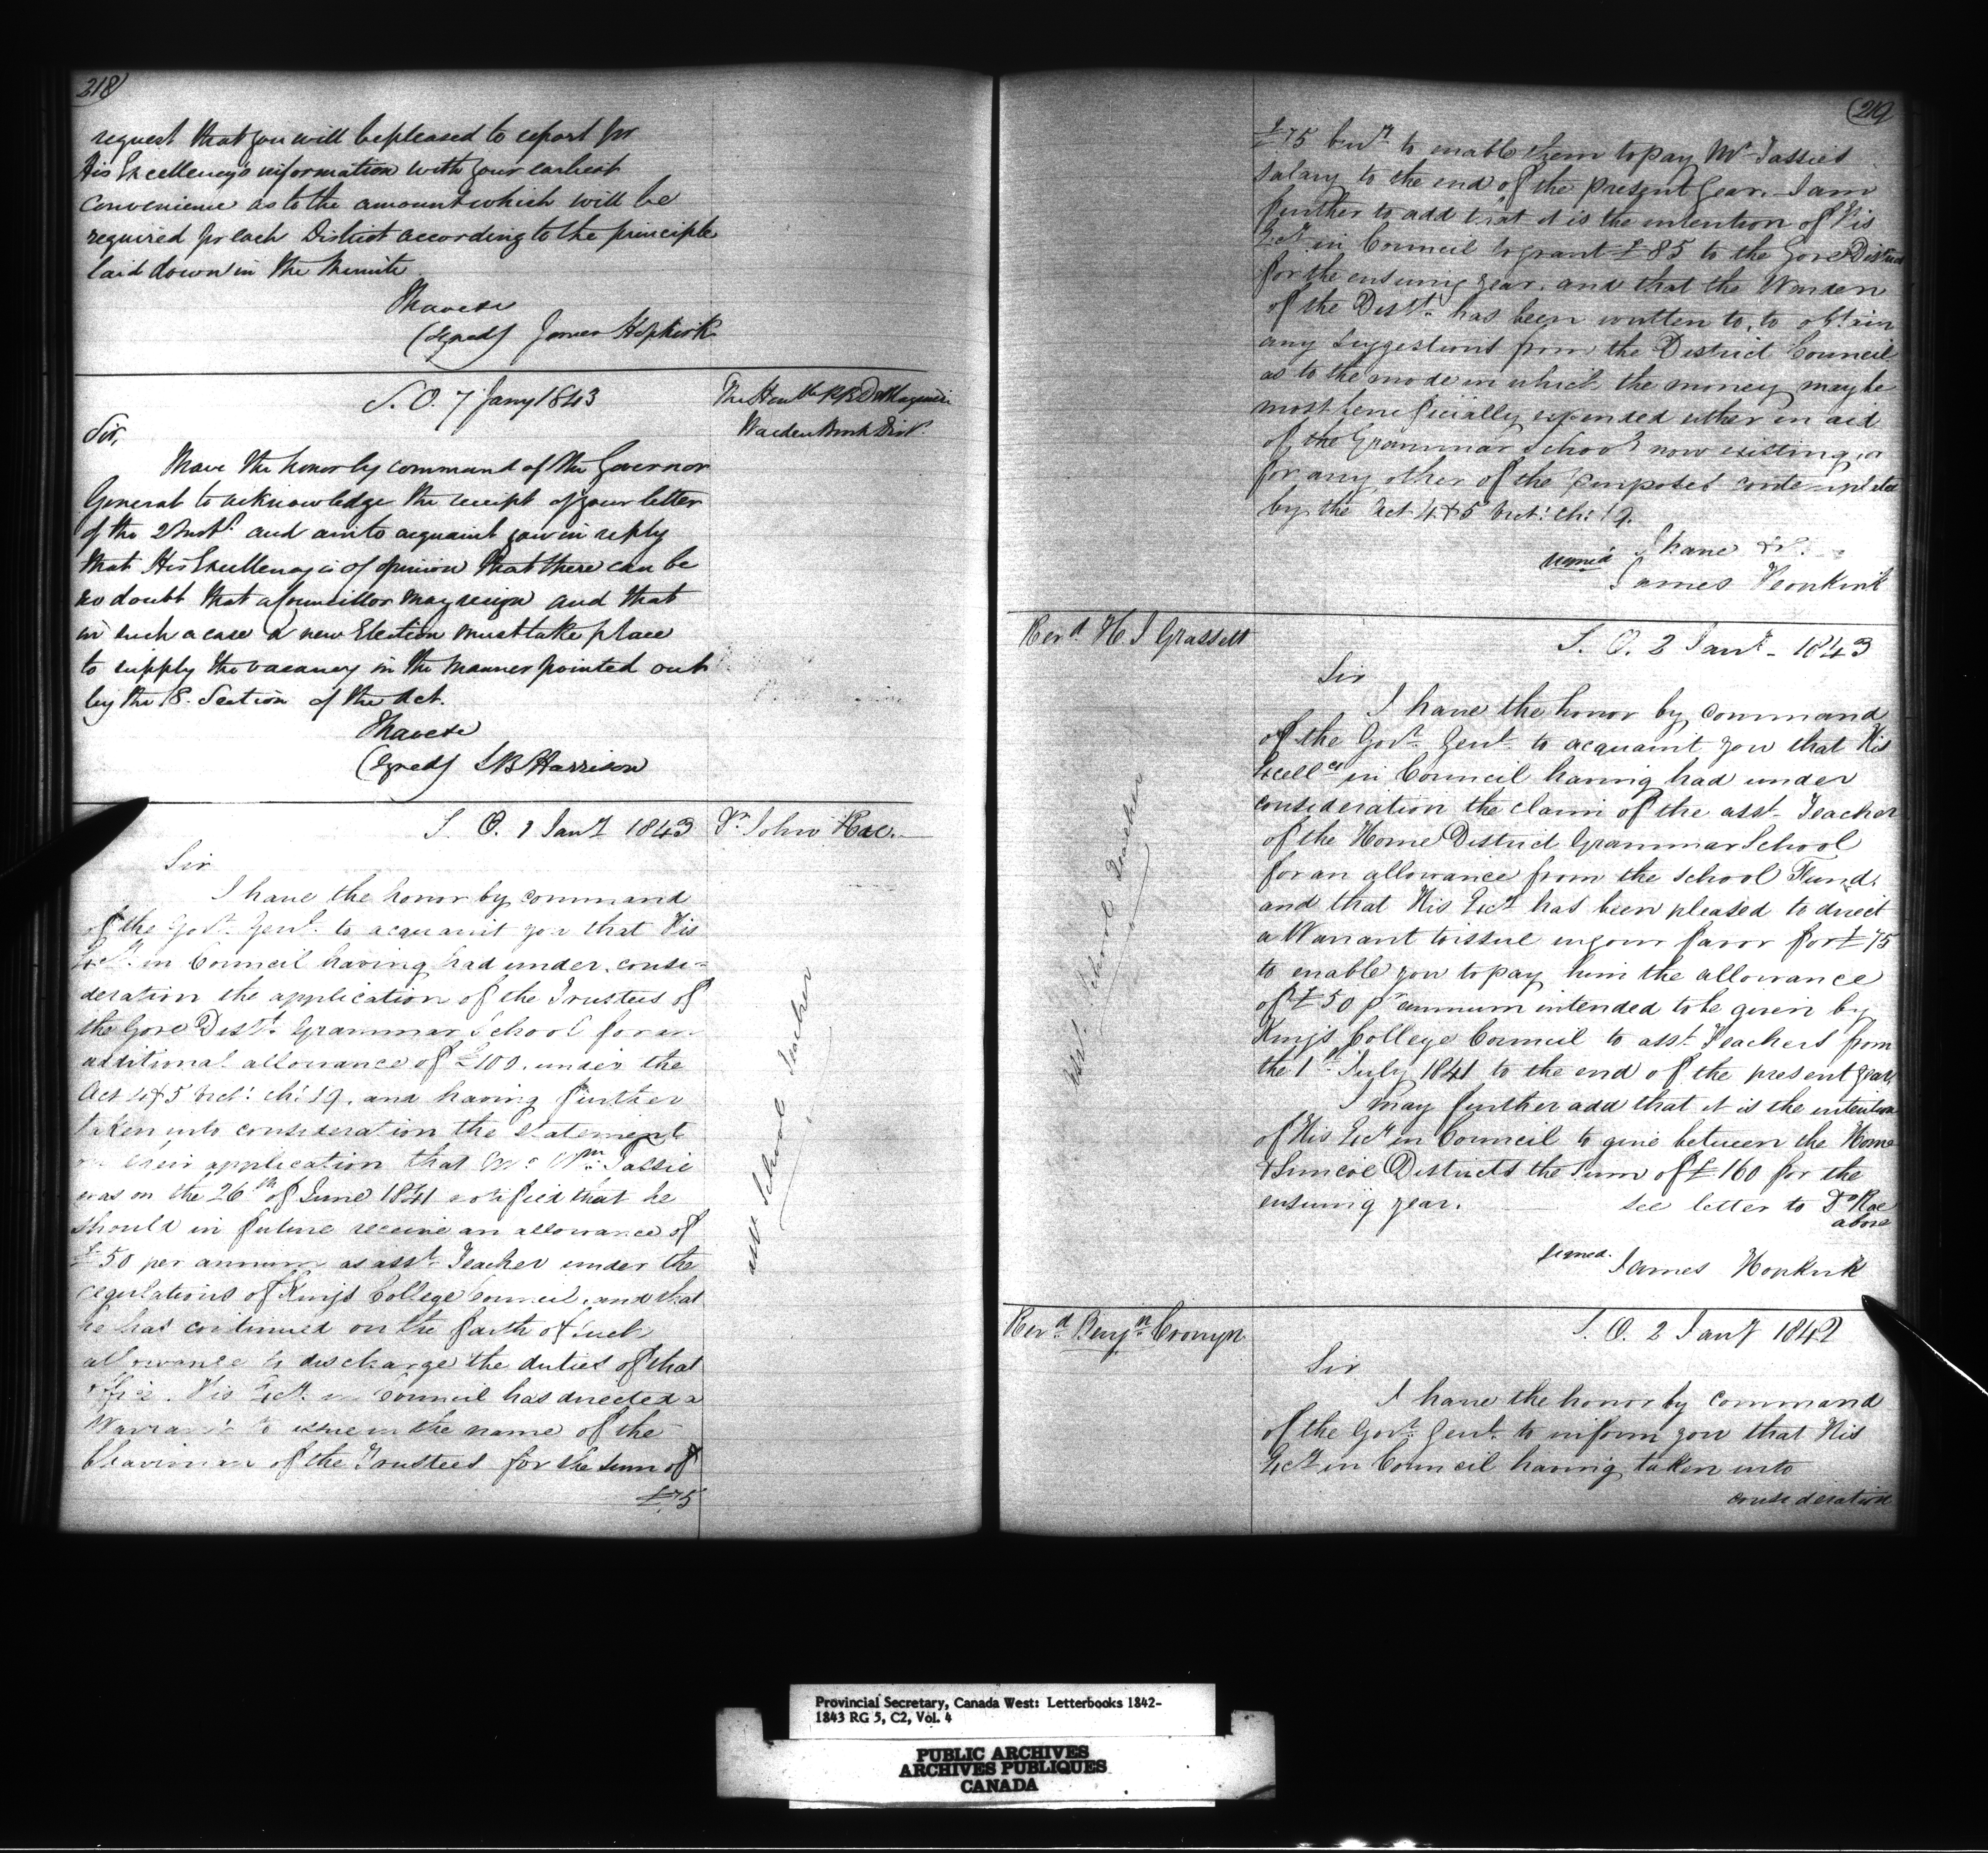 218
request that you will be pleased to report for
His Excellency's information with your earliest
convenience as to the amount which will be
required for each District according to the principle
laid down in the Minute
I have &c
(Signed) James Hopkirk
S. O. 7 Jany 1843
The Honble P. B. De
Warden Dist.
Sir,
I have the honor by command of the Governor
General to acknowledge the receipt of your letter
of the 2 Inst. and am to acquaint you in reply
that His Excellency is of opinion that there can be
no doubt that a Councillor may resign and that
in such a case a new Election must take place
to supply the vacancy in the manner pointed out
by the 18. Section of the Act.
I have &c
(Signed) S B Harrison
S. O. 2 Jany 1843
Dr. John Rae.
Sir
I have the honor by command
of the Govr. Genl. to acquaint you that His
Excy. in Council having had under consi-
deration the application of the Trustees of
the Gore Distt. Grammar School for an
additional allowance of £100. under the
Act 4 & 5 Vict: ch: 19. and having further
taken into consideration the statement
in their application that Mr. Wm. Tassie
was on the 26th of June 1841 notified that he
should in future receive an allowance of
£50 per annum as asst. Teacher under the
regulations of Kings College Council, and that
he has continued on the faith of such
allowance to discharge the duties of that
office. His Excy. in Council has directed a
Warrant to issue in the name of the
Chairman of the Trustees for the sum of
£75
asst School Teacher
219
£75 to enable them to pay Mr Tassie's
salary to the end of the present year. I am
further to add that it is the intention of His
Excy. in Council to grant £85 to the Gore District
for the ensuing year. and that the Warden
of the Distt. has been written to, to obtain
any suggestions from the District Council
as to the mode in which the money may be
most beneficially expended either in aid
of the Grammar School now existing or
for any other of the purposes contemplated
by the Act 4 & 5 Vict: ch: 19.
I have &c.
signed James Hopkirk
Revd. H. J Grassett
S. O. 2 Jany. 1843
Sir
I have the honor by command
of the Govr. Genl. to acquaint you that His
Excellcy in Council having had under
consideration the claim of the asst. Teacher
of the Home District Grammar School
for an allowance from the school Fund.
and that His Excy. has been pleased to direct
a Warrant to issue in your favor for £75
to enable you to pay him the allowance
of £50 pr annum intended to be given by
Kings College Council to asst. Teachers from
the 1st July 1841 to the end of the present year.
I may further add that it is the intention
of His Excy. in Council to give between the Home
& Simcoe Districts the sum of £160 for the
ensuing year. see letter to Dr Rae
above
signed. James Hopkirk
asst. School Teacher
Revd. Benjn. Cronyn
S. O. 2 Jany 1842
Sir
I have the honor by command
of the Govr. Genl. to inform you that His
Excy. in Council having taken into
consideration
Provincial Secretary, Canada West: Letterbooks 1842-
1843 RG 5, C2, Vol. 4
PUBLIC ARCHIVES
ARCHIVES PUBLIQUES
CANADA